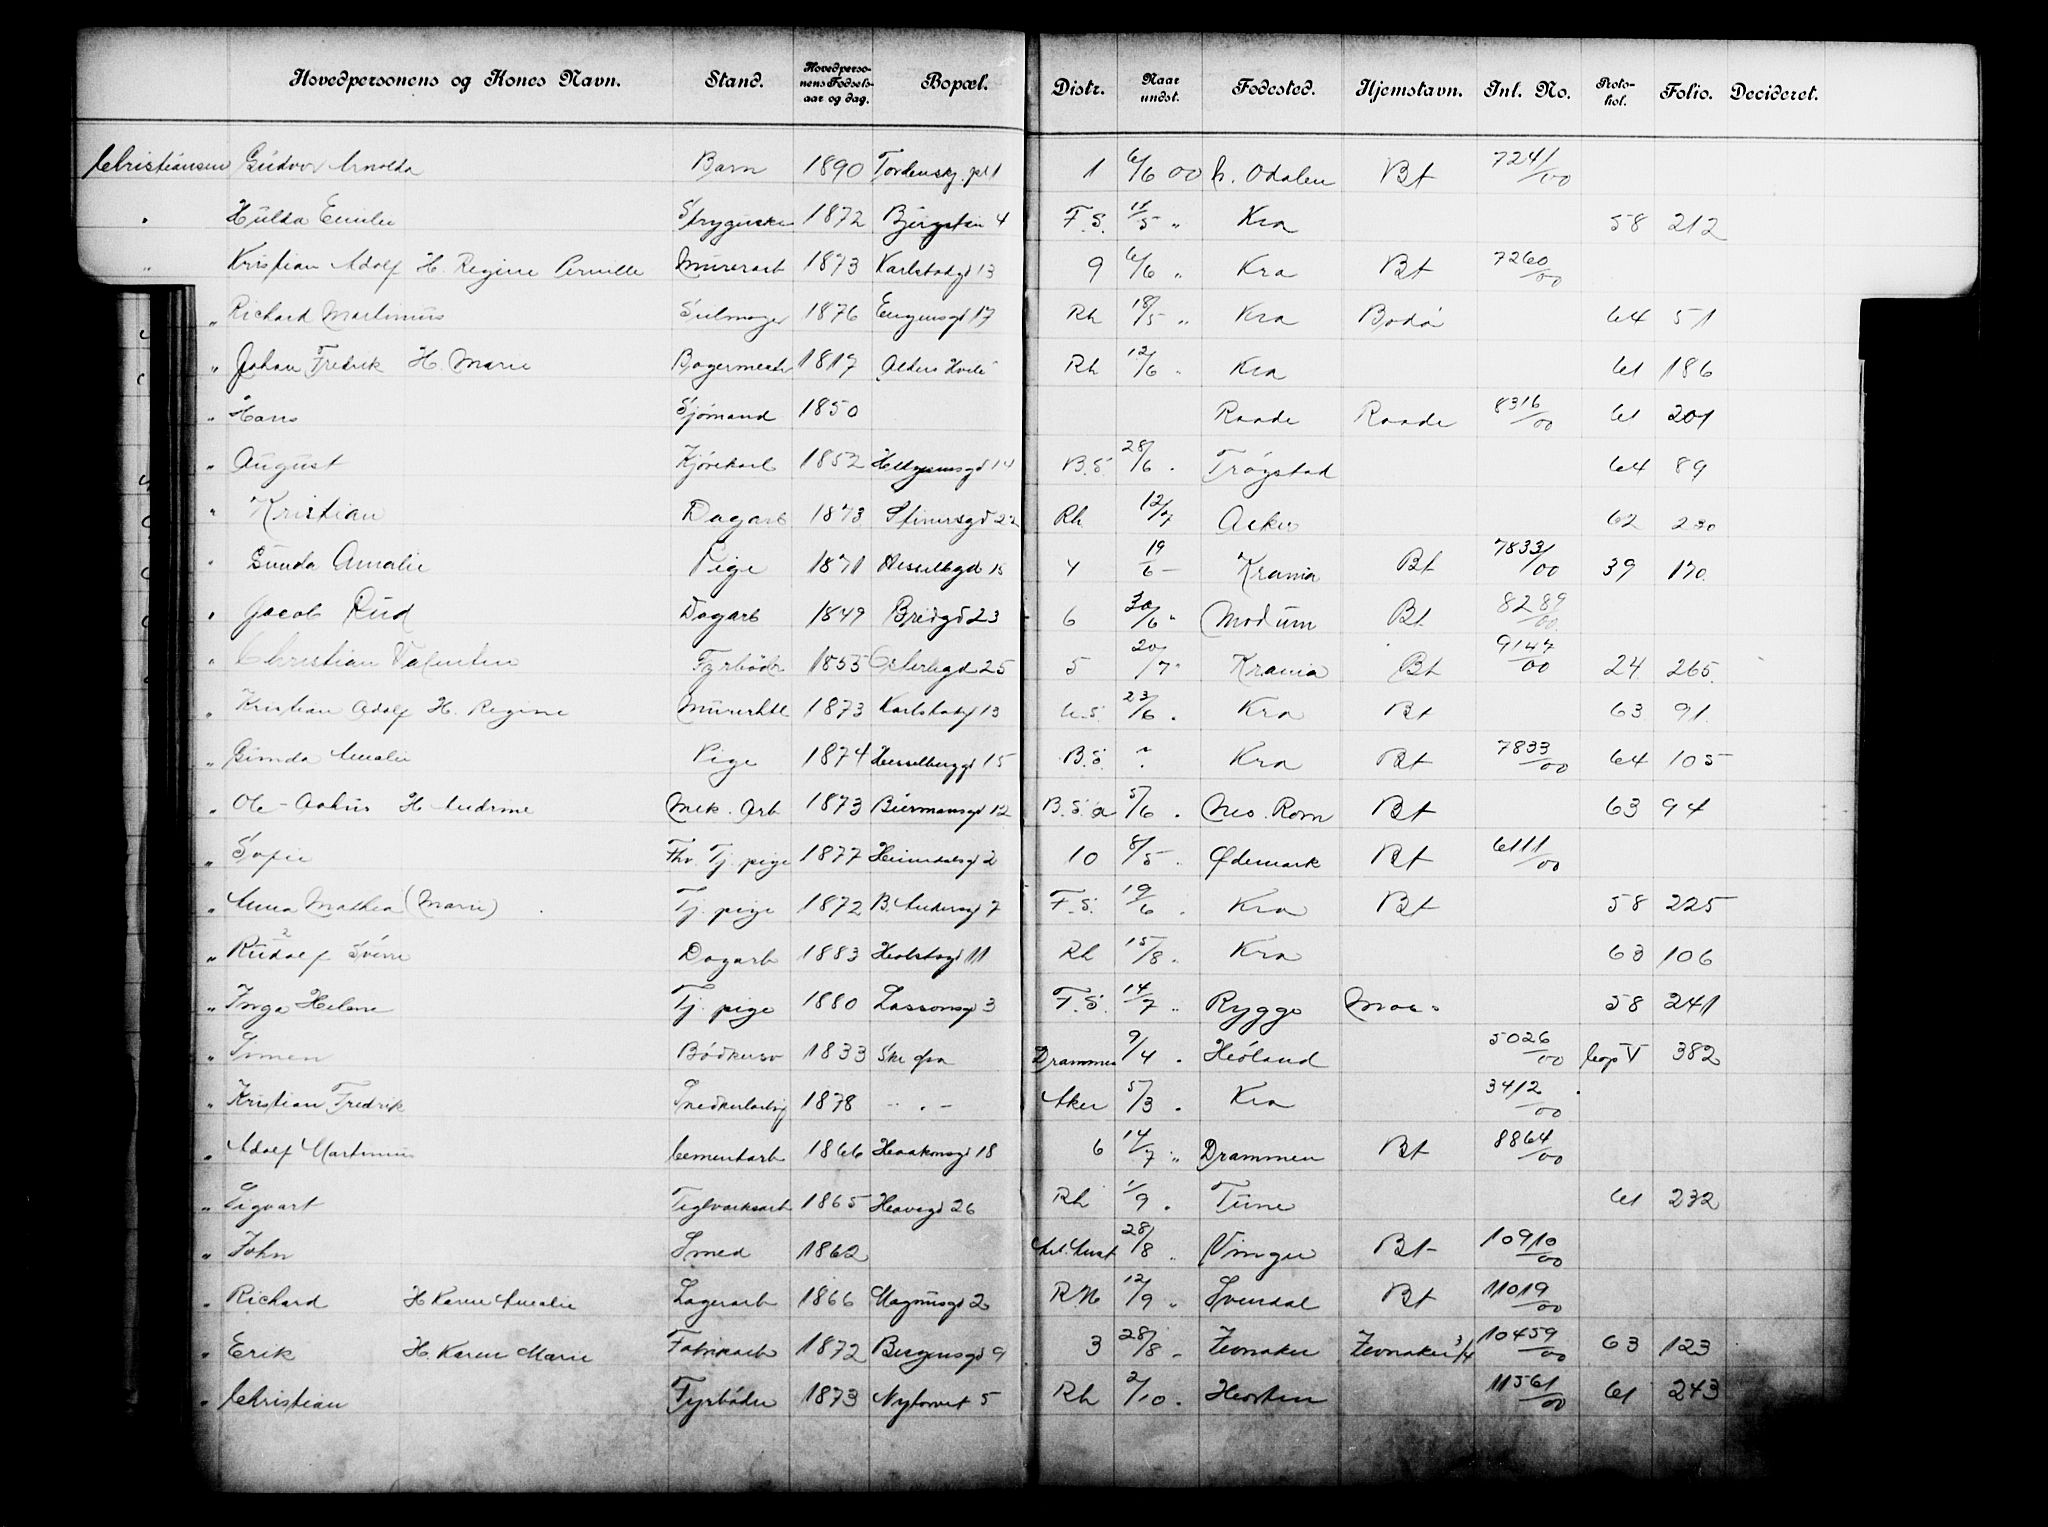 Hovedpersonens og Kones Navn. Stand. Hovedperso-nens Fødsels-aar og dag. Bopæl. Distr. Naar undst. Fødested. Hjemstavn. Int. No. Proto-kol. Folio. Decideret.
Christiansen Gudvor Arnolda Barn 1890 Tordenskj. pl 1 1 6/6 00 S. Odalen Bt 7241/00
" Hulda Emilie Strygerske 1872 4 F.S. 11/5 " Kra 58 212
" Kristian Adolf H. Regine Pernille Murerarb 1873 Karlstadgd 13 9 6/6 " Kra Bt 7260/00
" Richard Martinius Seilmager 1876 Eugensgd 17 Rh 18/5 " Kra Bodø 64 51
" Johan Fredrik H. Marie Bagermester 1817 Alders Hvile Rh 12/6 " Kra 61 186
" Hans Sjømand 1850 Raade Raade 8316/00 61 201
" August Kjørekarl 1852 Helgesensgd 14 B.S. 28/6 " Trøgstad 64 89
" Kristian Dagarb 1873 Stenersgd 22 Rh 12/7 Aker 62 230
" Gunda Amalie Pige 1871 Hesselbgd 15 4 19/6 - Krania Bt 7833/00 39 170
" Jacob Rud Dagarb 1849 Bredgd 23 6 30/6 " Modum Bt 8289/00
" Christian Valentin Fyrbøder 1855 Osterhgd 25 5 20/7 " Krania Bt 9147/00 24 265
" Kristian Adolf H. Regine Murerhdl 1873 Karlstadgd 13 U.S. 23/6 " Kra Bt 63 91
" Gunda Amalie Pige 1874 Hesselberggd 15 B.S. " Kra Bt 7833/00 64 105
" Ole - Aahus H. Andrine Mek. Arb 1873 Biermansgd 12 B.S.a 5/6 " Nes. Rom Bt 63 94
" Sofie Fhv. Tj. pige 1877 Heimdalsgd 2 10 8/5 " Ødemark Bt 6111/00
" Anna Mathea (Marie) Tj. pige 1872 B. Ankersgd 7 F.S. 19/6 " Kra Bt 58 225
" Rudolf Sverre Dagarb 1883 Holstsgd 11 Rh 15/8 " Kra 63 106
" Inga Helene Tj. pige 1880 Lassonsgd 3 F.S. 14/7 " Rygge Moss 58 241
" Simen Bødkersv 1833 Ske fra Drammen 9/4 " Høland 5026/00 Cop V 382
" Kristian Fredrik Snedkerlærlg 1878 - " - Aker 5/3 " Kra 3412/00
" Adolf Martinius Cementarb 1866 Haakonsgd 18 6 14/7 " Drammen Bt 8864/00
" Sigvart Teglværksarb 1865 Havsgd 26 Rh 1/9 " Tune 61 232
" John Smed 1862 28/8 " Vinger Bt 10910/00
" Richard H Karen Amalie Lagerarb 1866 Magnusgd 2 R.N 12/9 " Svendal Bt 11019/00
" Erik H. Karen Marie Fabrikarb 1872 Bergensgd 9 3 28/8 " Evenaker Evenaker 3/4 10459/00 63 123
" Christian Fyrbøder 1873 Nytorvet 5 Rh 2/10 " Horten 11561/00 61 243